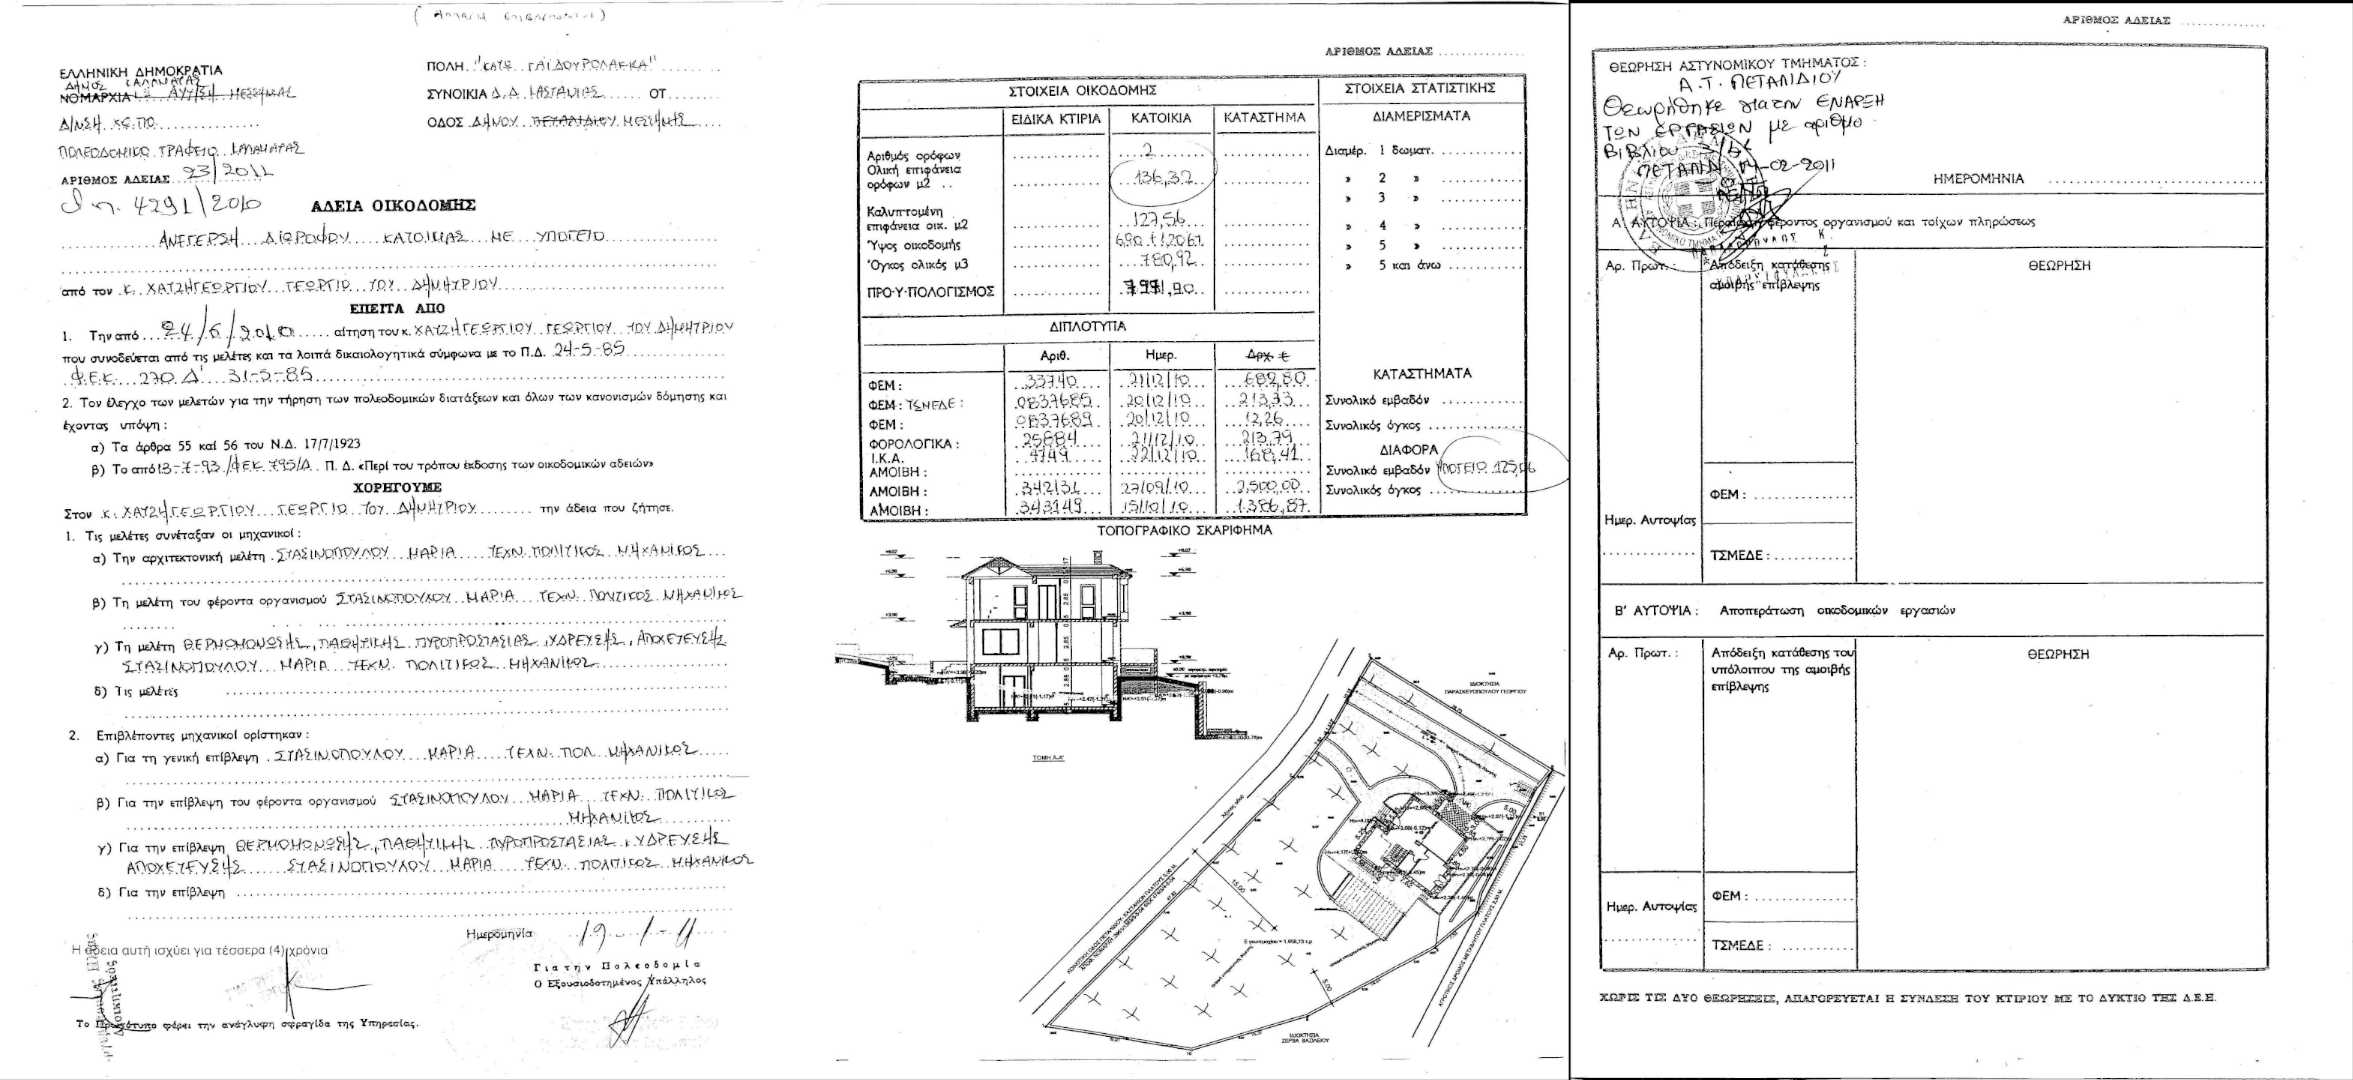 ΕΛΛΗΝΙΚΗ ΔΗΜΟΚΡΑΤΙΑ
ΔΗΜΟΣ ΚΑΛΑΜΑΤΑΣ
ΝΟΜΑΡΧΙΑ ΜΕΣΣΗΝΙΑΣ
Δ/ΝΣΗ
ΠΟΛΕΟΔΟΜΙΚΟ ΓΡΑΦΕΙΟ ΚΑΛΑΜΑΤΑΣ
ΑΡΙΘΜΟΣ ΑΔΕΙΑΣ 23/2011
4291/2010
ΠΟΛΗ "ΚΑΤΩ ΓΑΪΔΟΥΡΟΛΑΚΚΑ"
ΣΥΝΟΙΚΙΑ Δ.Δ. ΚΑΣΤΑΝΙΑΣ ΟΤ
ΟΔΟΣ ΔΗΜΟΥ ΠΕΤΑΛΙΔΙΟΥ ΜΕΣΣΗΝΗΣ
ΑΔΕΙΑ ΟΙΚΟΔΟΜΗΣ
ΑΝΕΓΕΡΣΗ ΔΙΩΡΟΦΟΥ ΚΑΤΟΙΚΙΑΣ ΜΕ ΥΠΟΓΕΙΟ
από τον κ. ΧΑΤΖΗΓΕΩΡΓΙΟΥ ΓΕΩΡΓΙΟ ΤΟΥ ΔΗΜΗΤΡΙΟΥ
ΕΠΕΙΤΑ ΑΠΟ
1. Την από 24/6/2010 αίτηση του κ. ΧΑΤΖΗΓΕΩΡΓΙΟΥ ΓΕΩΡΓΙΟΥ ΤΟΥ ΔΗΜΗΤΡΙΟΥ
που συνοδεύεται από τις μελέτες και τα λοιπά δικαιολογητικά σύμφωνα με το Π.Δ. 24-5-85
Φ.Ε.Κ. 270 Δ' 31-5-85
2. Τον έλεγχο των μελετών για την τήρηση των πολεοδομικών διατάξεων και όλων των κανονισμών δόμησης και
έχοντας υπόψη:
α) Τα άρθρα 55 καί 56 του Ν.Δ. 17/7/1923
β) Το από 13-7-93/ΦΕΚ 795/Δ Π. Δ. «Περί του τρόπου έκδοσης των οικοδομικών αδειών»
ΧΟΡΗΓΟΥΜΕ
Στον κ. ΧΑΤΖΗΓΕΩΡΓΙΟΥ ΓΕΩΡΓΙΟ ΤΟΥ ΔΗΜΗΤΡΙΟΥ την άδεια που ζήτησε.
1. Τις μελέτες συνέταξαν οι μηχανικοί:
α) Την αρχιτεκτονική μελέτη ΣΤΑΣΙΝΟΠΟΥΛΟΥ ΜΑΡΙΑ ΤΕΧΝ. ΠΟΛΙΤΙΚΟΣ ΜΗΧΑΝΙΚΟΣ
β) Τη μελέτη του φέροντα οργανισμού ΣΤΑΣΙΝΟΠΟΥΛΟΥ ΜΑΡΙΑ ΤΕΧΝ. ΠΟΛΙΤΙΚΟΣ ΜΗΧΑΝΙΚΟΣ
γ) Τη μελέτη ΘΕΡΜΟΜΟΝΩΣΗΣ, ΠΑΘΗΤΙΚΗΣ ΠΥΡΟΠΡΟΣΤΑΣΙΑΣ, ΥΔΡΕΥΣΗΣ, ΑΠΟΧΕΤΕΥΣΗΣ
ΣΤΑΣΙΝΟΠΟΥΛΟΥ ΜΑΡΙΑ ΤΕΧΝ. ΠΟΛΙΤΙΚΟΣ ΜΗΧΑΝΙΚΟΣ
δ) Τις μελέτες
2. Επιβλέποντες μηχανικοί ορίστηκαν:
α) Για τη γενική επίβλεψη ΣΤΑΣΙΝΟΠΟΥΛΟΥ ΜΑΡΙΑ ΤΕΧΝ. ΠΟΛ. ΜΗΧΑΝΙΚΟΣ
β) Για την επίβλεψη του φέροντα οργανισμού ΣΤΑΣΙΝΟΠΟΥΛΟΥ ΜΑΡΙΑ ΤΕΧΝ. ΠΟΛΙΤΙΚΟΣ
ΜΗΧΑΝΙΚΟΣ
γ) Για την επίβλεψη ΘΕΡΜΟΜΟΝΩΣΗΣ, ΠΑΘΗΤΙΚΗΣ ΠΥΡΟΠΡΟΣΤΑΣΙΑΣ, ΥΔΡΕΥΣΗΣ
ΑΠΟΧΕΤΕΥΣΗΣ ΣΤΑΣΙΝΟΠΟΥΛΟΥ ΜΑΡΙΑ ΤΕΧΝ. ΠΟΛΙΤΙΚΟΣ ΜΗΧΑΝΙΚΟΣ
δ) Για την επίβλεψη
Ημερομηνία 19-1-11
Η άδεια αυτή ισχύει για τέσσερα (4) χρόνια
Για την Πολεοδομία
Ο Εξουσιοδοτημένος Υπάλληλος
Το Πρωτότυπο φέρει την ανάγλυφη σφραγίδα της Υπηρεσίας.
ΑΡΙΘΜΟΣ ΑΔΕΙΑΣ
ΣΤΟΙΧΕΙΑ ΟΙΚΟΔΟΜΗΣ
ΕΙΔΙΚΑ ΚΤΙΡΙΑ ΚΑΤΟΙΚΙΑ ΚΑΤΑΣΤΗΜΑ
Αριθμός ορόφων 2
Ολική επιφάνεια
ορόφων μ2 136,32
Καλυπτομένη
επιφάνεια οικ. μ2 127,56
Ύψος οικοδομής
Όγκος ολικός μ3 780,92
ΠΡΟ·Υ·ΠΟΛΟΓΙΣΜΟΣ
ΔΙΠΛΟΤΥΠΑ
Αριθ. Ημερ. Δρχ. €
ΦΕΜ: 33740 21/12/10 682,80
ΦΕΜ: ΤΣΜΕΔΕ: 0837685 20/12/10 213,33
ΦΕΜ: 0837689 20/12/10 12,26
ΦΟΡΟΛΟΓΙΚΑ: 25884 21/12/10 213,79
Ι.Κ.Α. 4749 22/12/10 168,41
ΑΜΟΙΒΗ:
ΑΜΟΙΒΗ: 342131 27/09/10 2.500,00
ΑΜΟΙΒΗ: 343149 15/10/10 1.386,87
ΣΤΟΙΧΕΙΑ ΣΤΑΤΙΣΤΙΚΗΣ
ΔΙΑΜΕΡΙΣΜΑΤΑ
Διαμέρ. 1 δωματ.
» 2 »
» 3 »
» 4 »
» 5 »
» 5 και άνω
ΚΑΤΑΣΤΗΜΑΤΑ
Συνολικό εμβαδόν
Συνολικός όγκος
ΔΙΑΦΟΡΑ
Συνολικό εμβαδόν ΥΠΟΓΕΙΟ 125,06
Συνολικός όγκος
ΤΟΠΟΓΡΑΦΙΚΟ ΣΚΑΡΙΦΗΜΑ
ΤΟΜΗ Α-Α'
ΙΔΙΟΚΤΗΣΙΑ
ΠΑΡΑΣΚΕΥΟΠΟΥΛΟΥ ΓΕΩΡΓΙΟΥ
15.00
5.00
ΙΔΙΟΚΤΗΣΙΑ
ΖΕΡΒΑ ΒΑΣΙΛΕΙΟΥ
ΑΡΙΘΜΟΣ ΑΔΕΙΑΣ
ΘΕΩΡΗΣΗ ΑΣΤΥΝΟΜΙΚΟΥ ΤΜΗΜΑΤΟΣ:
Α.Τ. ΠΕΤΑΛΙΔΙΟΥ
Θεωρήθηκε για την ΕΝΑΡΞΗ
ΤΩΝ ΕΡΓΑΣΙΩΝ με αριθμο
Βιβλίου
-02-2011
ΗΜΕΡΟΜΗΝΙΑ
Α' ΑΥΤΟΨΙΑ: Περαίωση φέροντος οργανισμού και τοίχων πληρώσεως
Αρ. Πρωτ.: Απόδειξη κατάθεσης
αμοιβής επίβλεψης
ΘΕΩΡΗΣΗ
ΦΕΜ:
Ημερ. Αυτοψίας
ΤΣΜΕΔΕ:
Β' ΑΥΤΟΨΙΑ: Αποπεράτωση οικοδομικών εργασιών
Αρ. Πρωτ.: Απόδειξη κατάθεσης του
υπόλοιπου της αμοιβής
επίβλεψης
ΘΕΩΡΗΣΗ
ΦΕΜ:
Ημερ. Αυτοψίας
ΤΣΜΕΔΕ:
ΧΩΡΙΣ ΤΙΣ ΔΥΟ ΘΕΩΡΗΣΕΙΣ, ΑΠΑΓΟΡΕΥΕΤΑΙ Η ΣΥΝΔΕΣΗ ΤΟΥ ΚΤΙΡΙΟΥ ΜΕ ΤΟ ΔΥΚΤΙΟ ΤΗΣ Δ.Ε.Η.